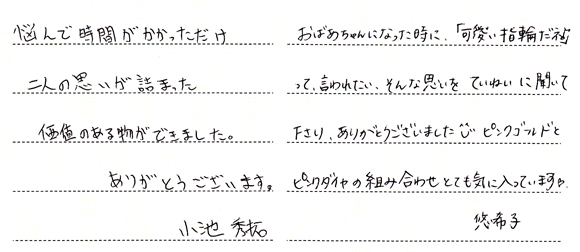 悩んで時間がかかっただけ
二人の思いが詰まった
価値のある物ができました。
ありがとうございます。
小池 秀拓
おばあちゃんになった時に、「可愛い指輪だね」
って、言われたい、そんな思いを ていねいに聞いて
下さり、ありがとうございました ピンクゴールドと
ピンクダイヤの組み合わせ とても気に入っています。
悠希子